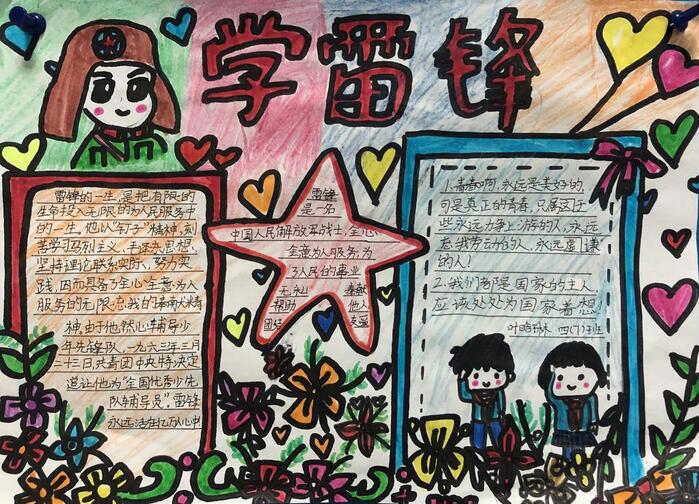 学雷锋
雷锋的一生，是把有限的
生命投入无限的为人民服务中
的一生，他以“钉子”精神，刻
苦学习马列主义、毛泽东思想，
坚持理论联系实际，努力实
践，因而具备了全心全意为人
服务的无限忘我的
神，由于他热心辅导少
年先锋队，一九六三年三月
二十三日，共青团中央特决定
追认他为“全国优秀少先
队辅导员”，雷锋
永远活在亿万人心中
雷锋
是一名
中国人民解放军战士，全心
全意为人服务，为
了人民的事业
无私 奉献
帮助 他人
团结 友爱
1.青春啊，永远是美好的，
可是真正的青春，只属于这
些永远力争上游的人，永远
忘我劳动的人，永远谦虚
的人！
2.我们都是国家的主人
应该处处为国家着想
叶 林 四(1)班